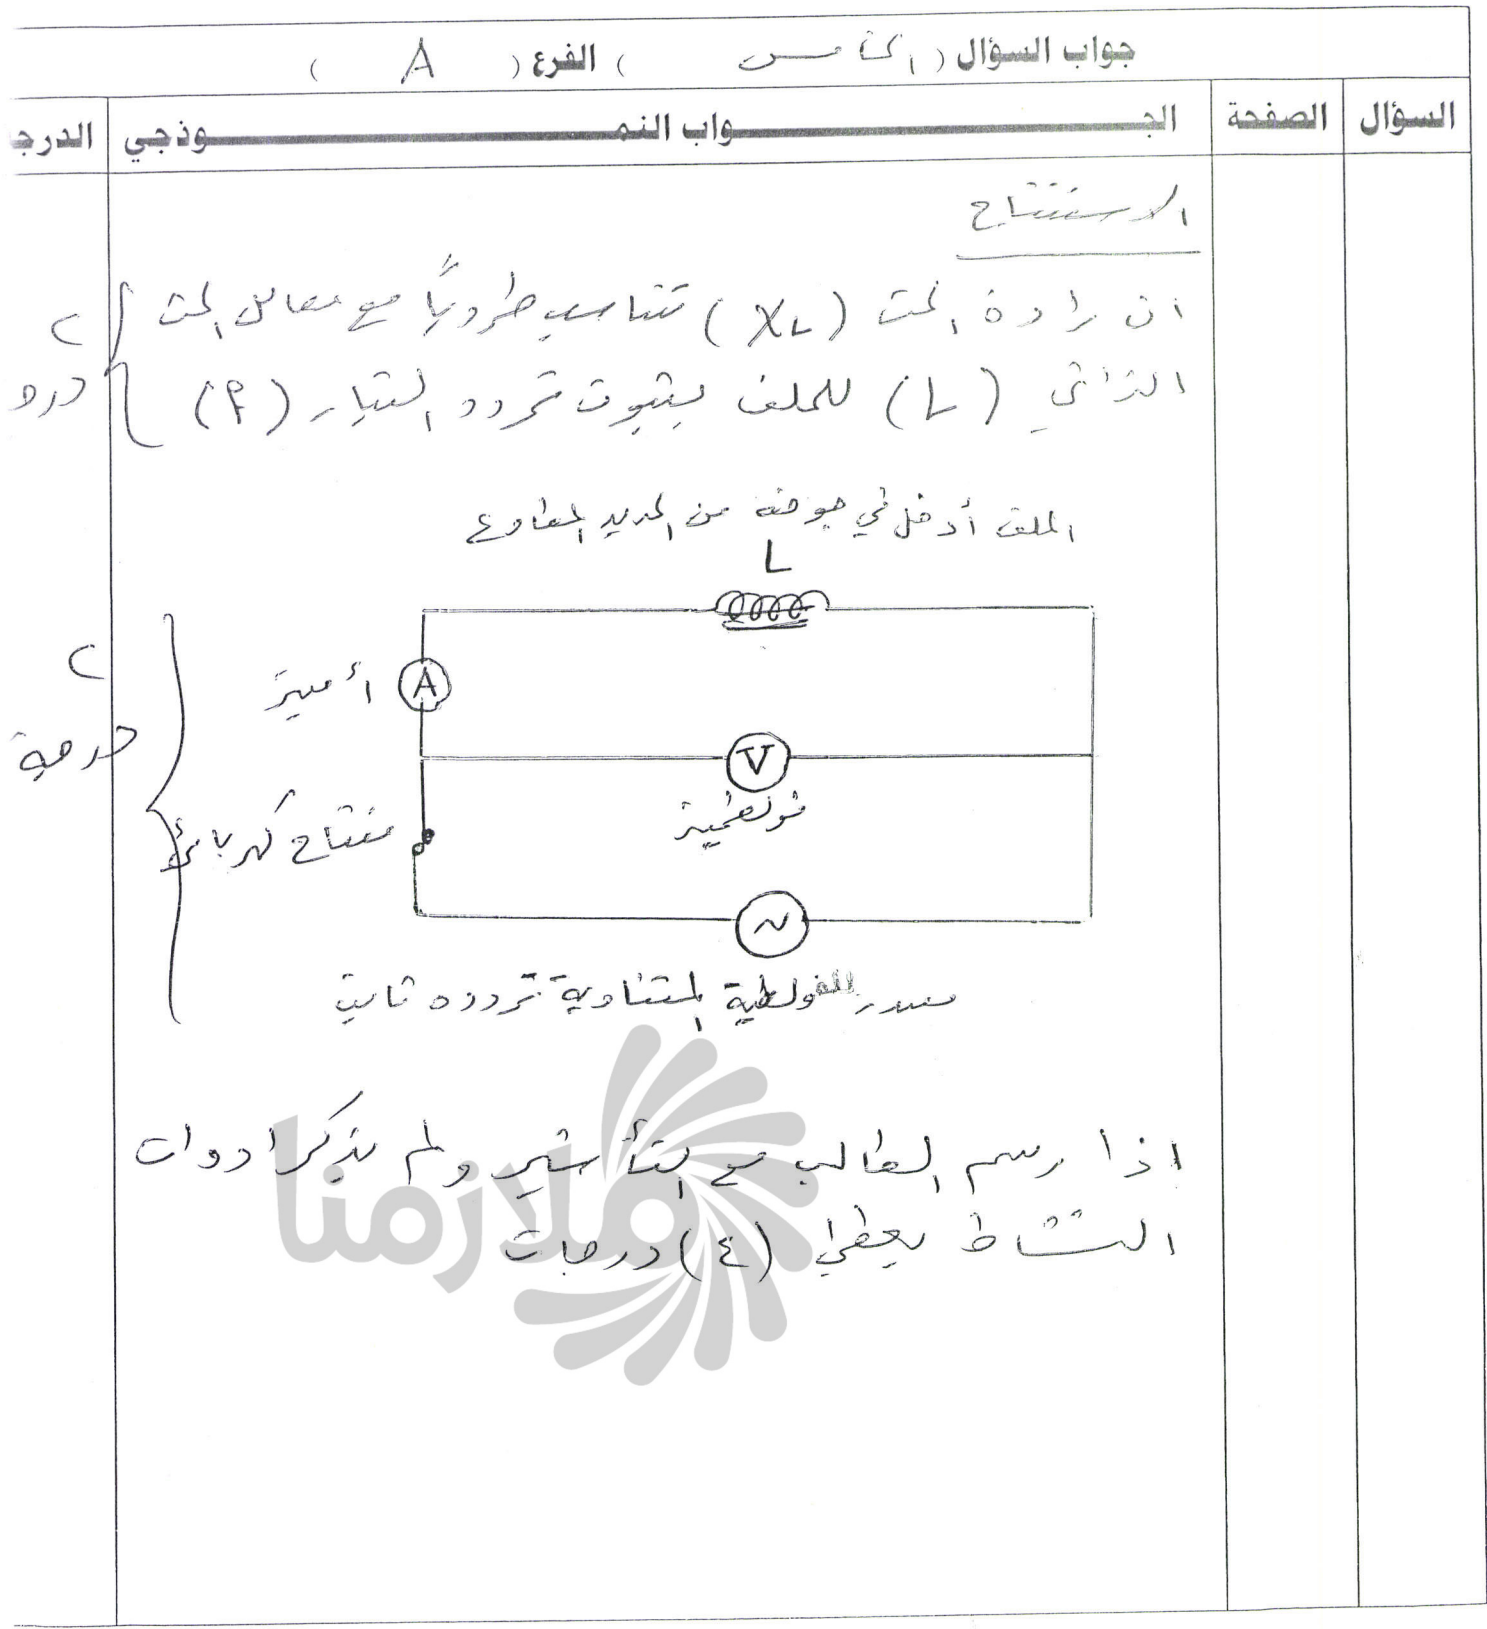 جواب السؤال ( الخامس ) الفرع ( A )
السؤال الصفحة الجواب النموذجي الدرجـ
الاستنتاج
ان رادة الحث (XL) تتناسب طردياً مع معامل الحث
الذاتي (L) للملف بثبوت تردد التيار (f)
٢
درجـ
الملف أدخل في جوفه من الحديد المطاوع
L
A أميتر
٢
درجة
V
فولطميتر
مفتاح كهربائي
~
مصدر للفولطية المتناوبة تردده ثابت
اذا رسم الطالب مع التأشير ولم يذكر ادوات
النشاط يعطى (٤) درجات
ملازمنا